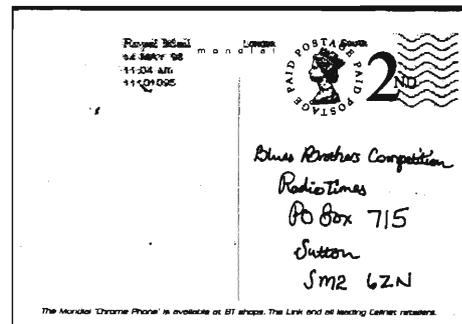 Royal Mail London South
mondial
14 MAY 98
11:04 am
11101095
POSTAGE PAID POSTAGE PAID
2ND
Blues Brothers Competition
RadioTimes
PO Box 715
Sutton
SM2 6ZN
The Mondial 'Chrome Phone' is available at BT shops, The Link and all leading Cellnet retailers.